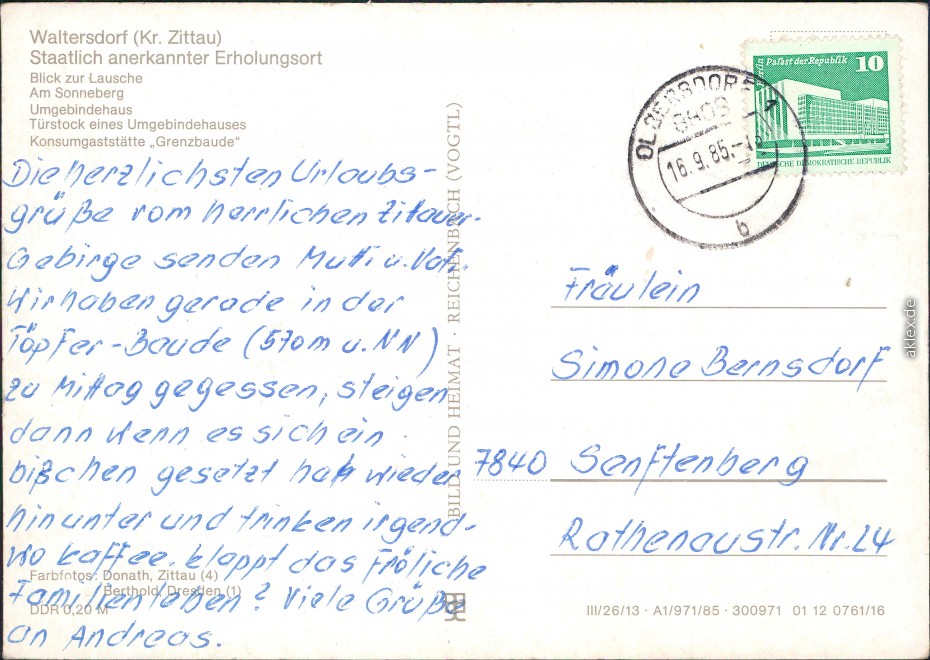 Waltersdorf (Kr. Zittau)
Staatlich anerkannter Erholungsort
Blick zur Lausche
Am Sonneberg
Umgebindehaus
Türstock eines Umgebindehauses
Konsumgaststätte „Grenzbaude"
Die herzlichsten Urlaubs-
grüße vom herrlichen Zittauer-
Gebirge senden Mutti u. Vati.
Wir haben gerade in der
Töpfer-Baude (570m ü.NN)
zu Mittag gegessen, steigen
dann wenn es sich ein
bißchen gesetzt hat wieder
hinunter und trinken irgend-
wo Kaffee. klappt das Fröliche
Familienleben? Viele Grüße
an Andreas.
Farbfotos: Donath, Zittau (4)
Berthold, Dresden (1)
DDR 0,20 M
BILD UND HEIMAT · REICHENBACH (VOGTL)
OLBERSDORF 1
8409
16.9.85.-
b
Berlin Palast der Republik 10
DEUTSCHE DEMOKRATISCHE REPUBLIK
Fräulein
Simone Bernsdorf
7840 Senftenberg
Rathenaustr. Nr. 24
III/26/13 · A1/971/85 · 300971 01 12 0761/16
aklex.de